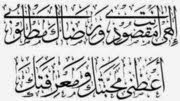 إلهي أنت مقصودي ورضاك مطلوبي
أعطني محبتك ومعرفتك